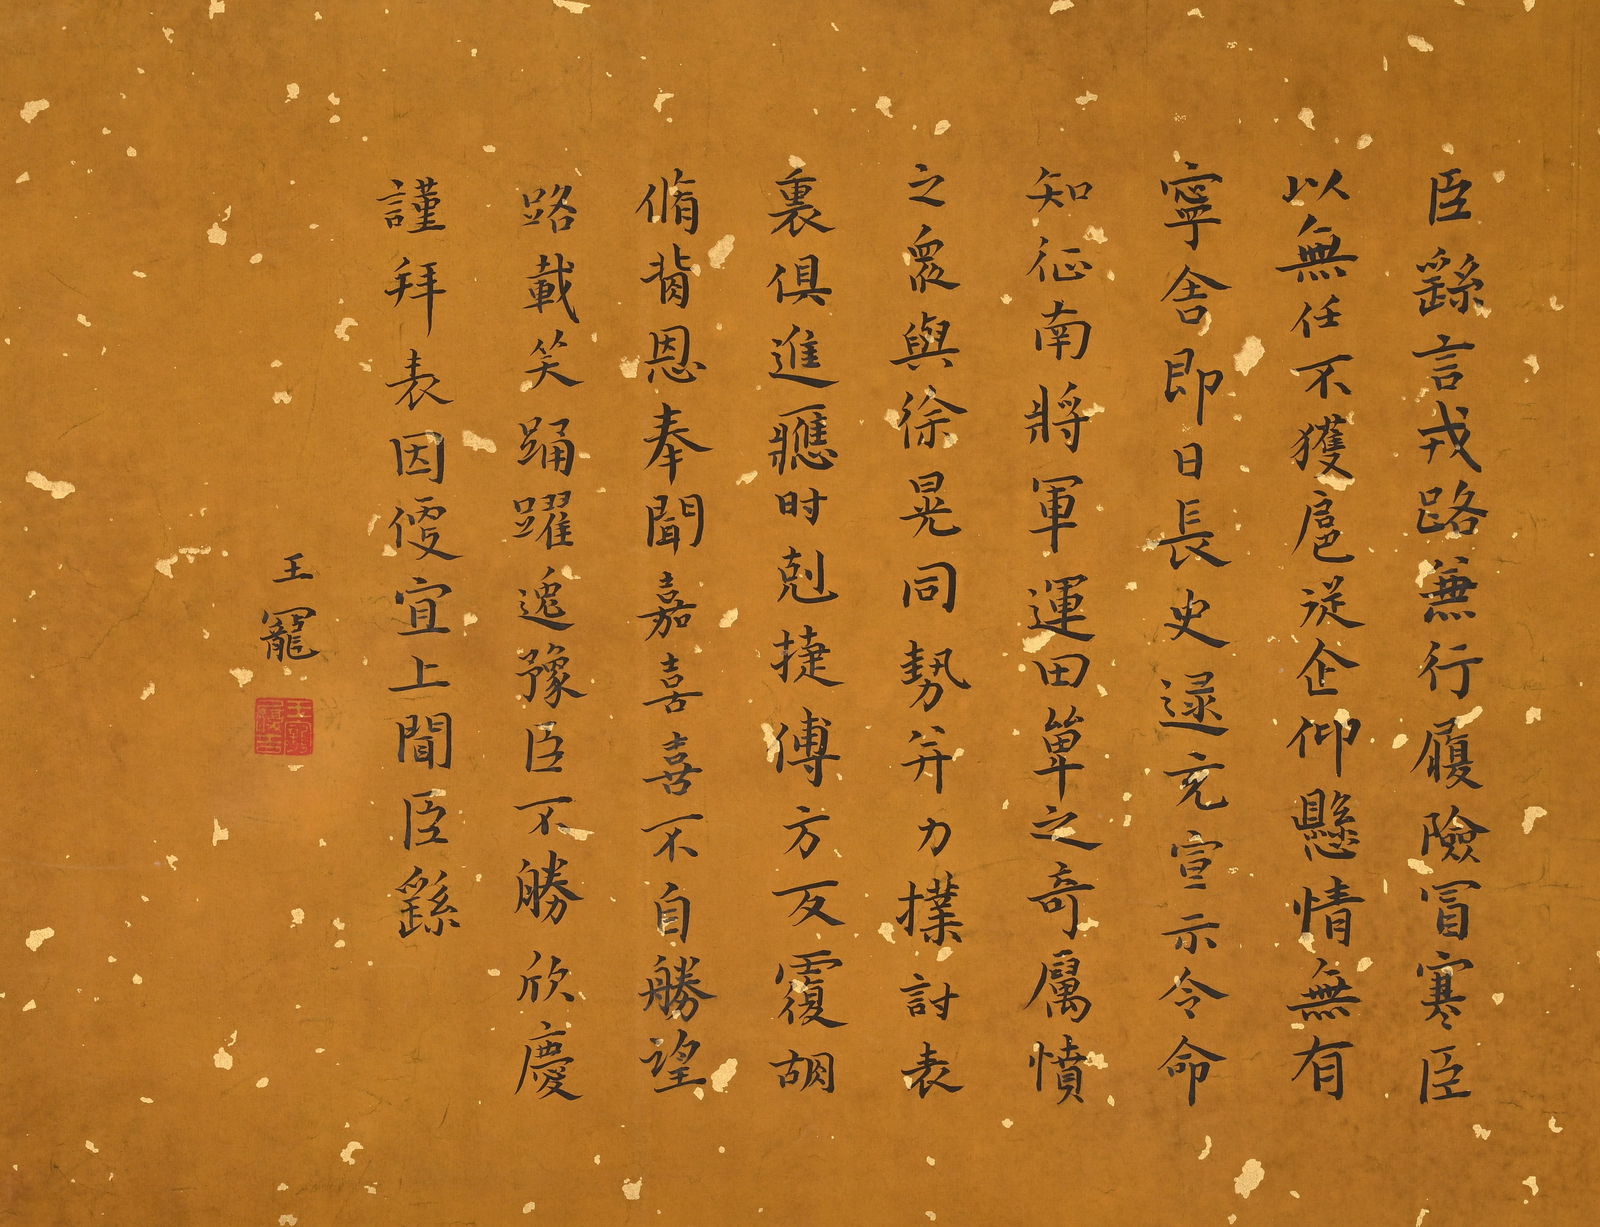 臣繇言戎路兼行履險冒寒臣
以無任不獲扈從企仰懸情無有
寧舍即日長史逯充宣示令命
知征南將軍運田單之奇厲憤
之衆與徐晃同勢并力撲討表
裏俱進應时剋捷傅方反覆胡
脩背恩奉聞嘉喜喜不自勝望
路載笑踊躍逸豫臣不勝欣慶
謹拜表因便宜上聞臣繇
王寵